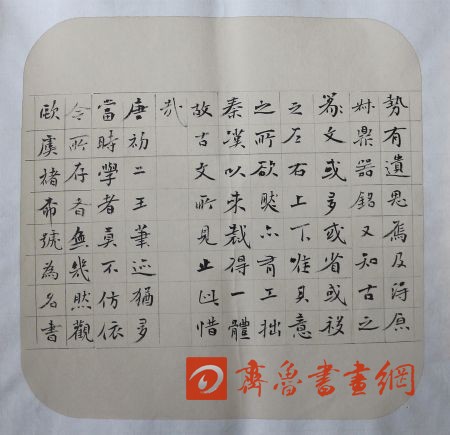 勢有遺思焉及得原
叔鼎器銘又知古之
篆文或多或省或移
之左右上下唯其意
之所欲然亦有工拙
秦漢以來裁得一體
故古文所見止此惜
哉
唐初二王筆迹猶多
當時學者莫不仿依
今所存者無幾然觀
歐虞褚號為名書
齊魯書畫網